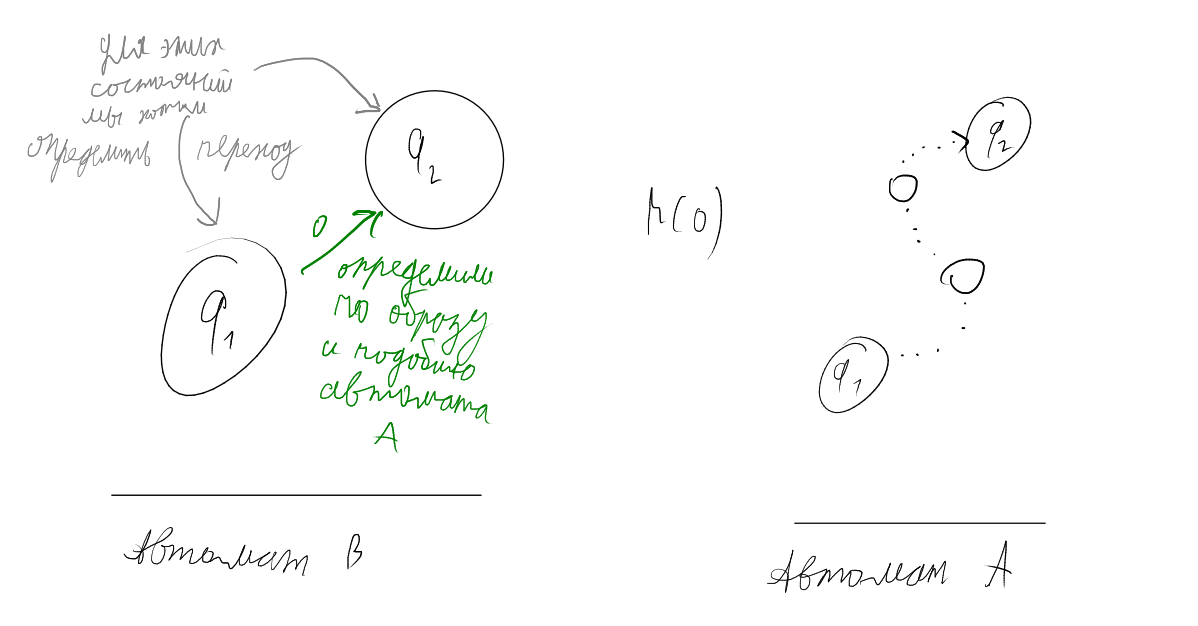 для этих
состояний
мы хотим
определить переход
q₂
q₁
0
определили
по образу
и подобию
автомата
A
Автомат B
h(0)
q₂
q₁
Автомат A